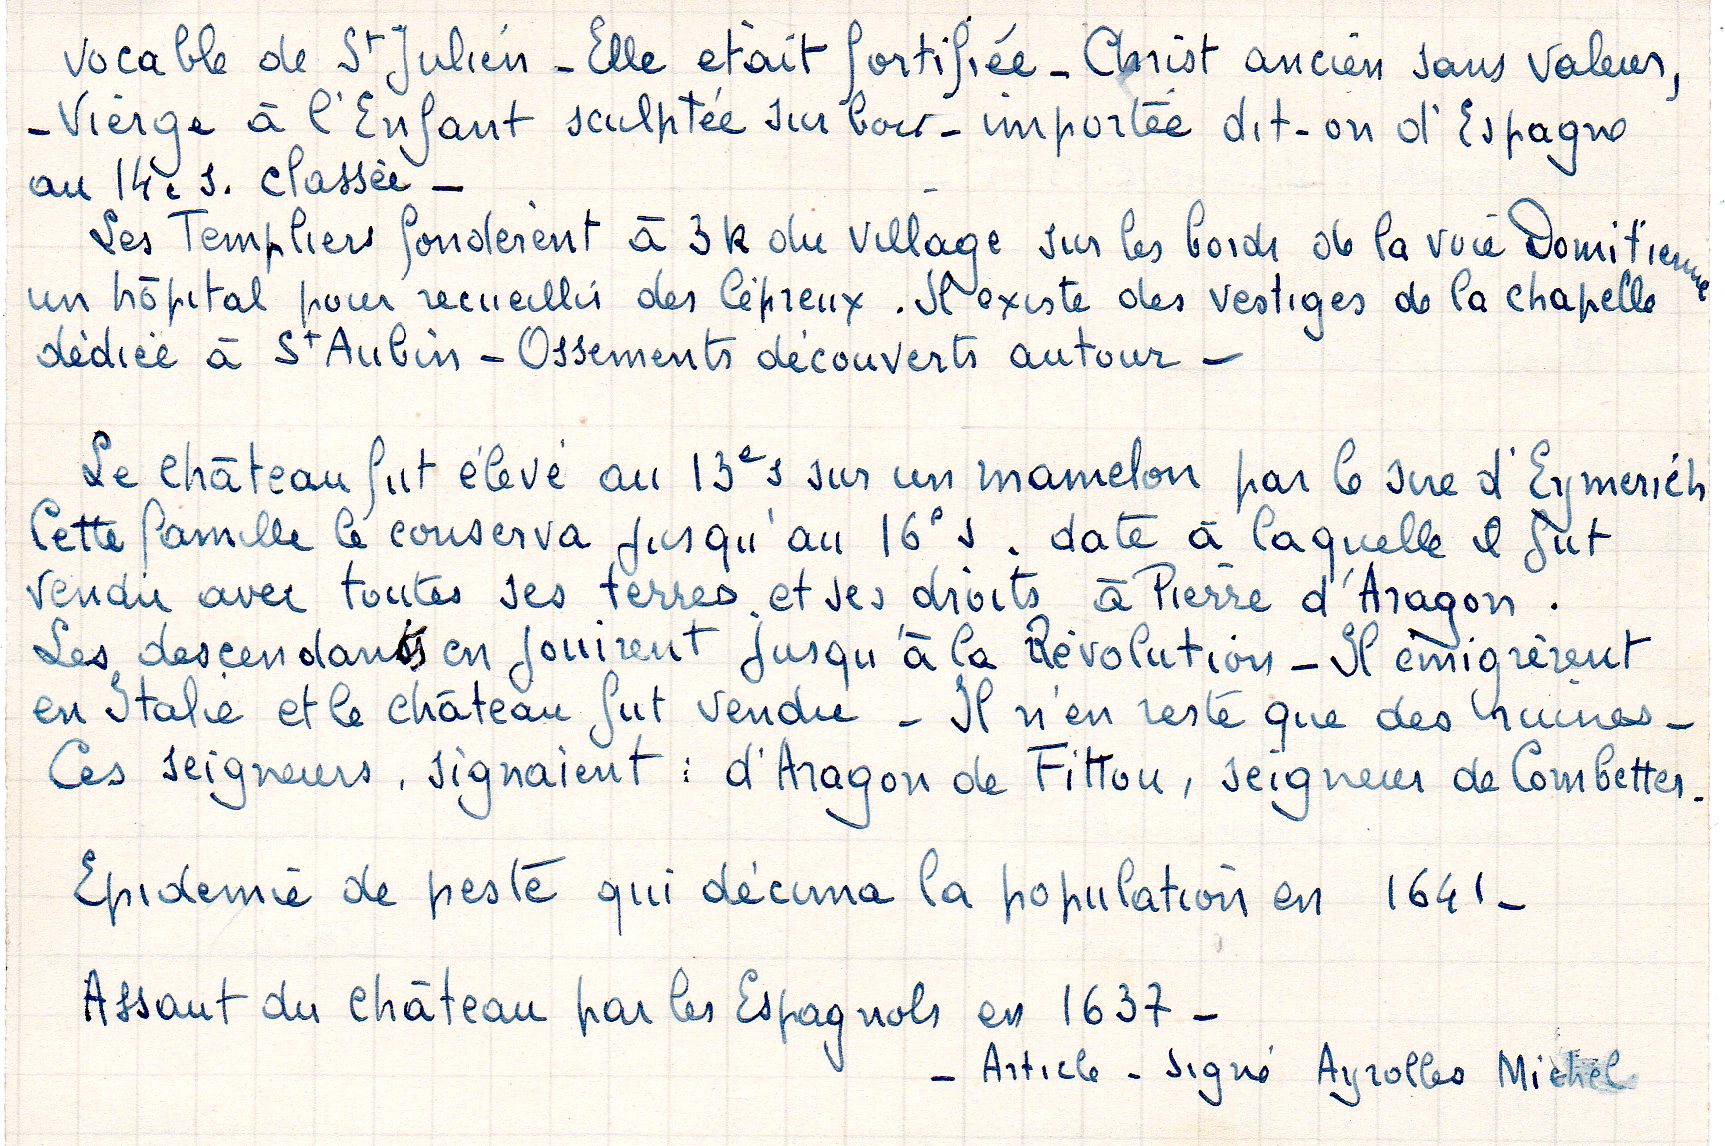 vocable de St Julien - Elle était fortifiée - Christ ancien sans valeur,
- Vierge à l'Enfant sculptée sur bois - importée dit-on d'Espagne
au 14e s. classée -
Les Templiers fondèrent à 3k du village sur les bords de la voie Domitienne
un hôpital pour recueillir des lépreux. Il existe des vestiges de la chapelle
dédiée à St Aubin - Ossements découverts autour -
Le château fut élevé au 13e s sur un mamelon par le sire d'Eymerich
Cette famille le conserva jusqu'au 16e s. date à laquelle il fut
vendu avec toutes ses terres et ses droits à Pierre d'Aragon.
Les descendants en jouirent jusqu'à la Révolution - Il émigrèrent
en Italie et le château fut vendu - Il n'en reste que des ruines -
Ces seigneurs, signaient : d'Aragon de Fittou, seigneur de Combettes.
Epidemie de peste qui décima la population en 1641 -
Assaut du château par les Espagnols en 1637 -
- Article - signé Ayrolles Michel